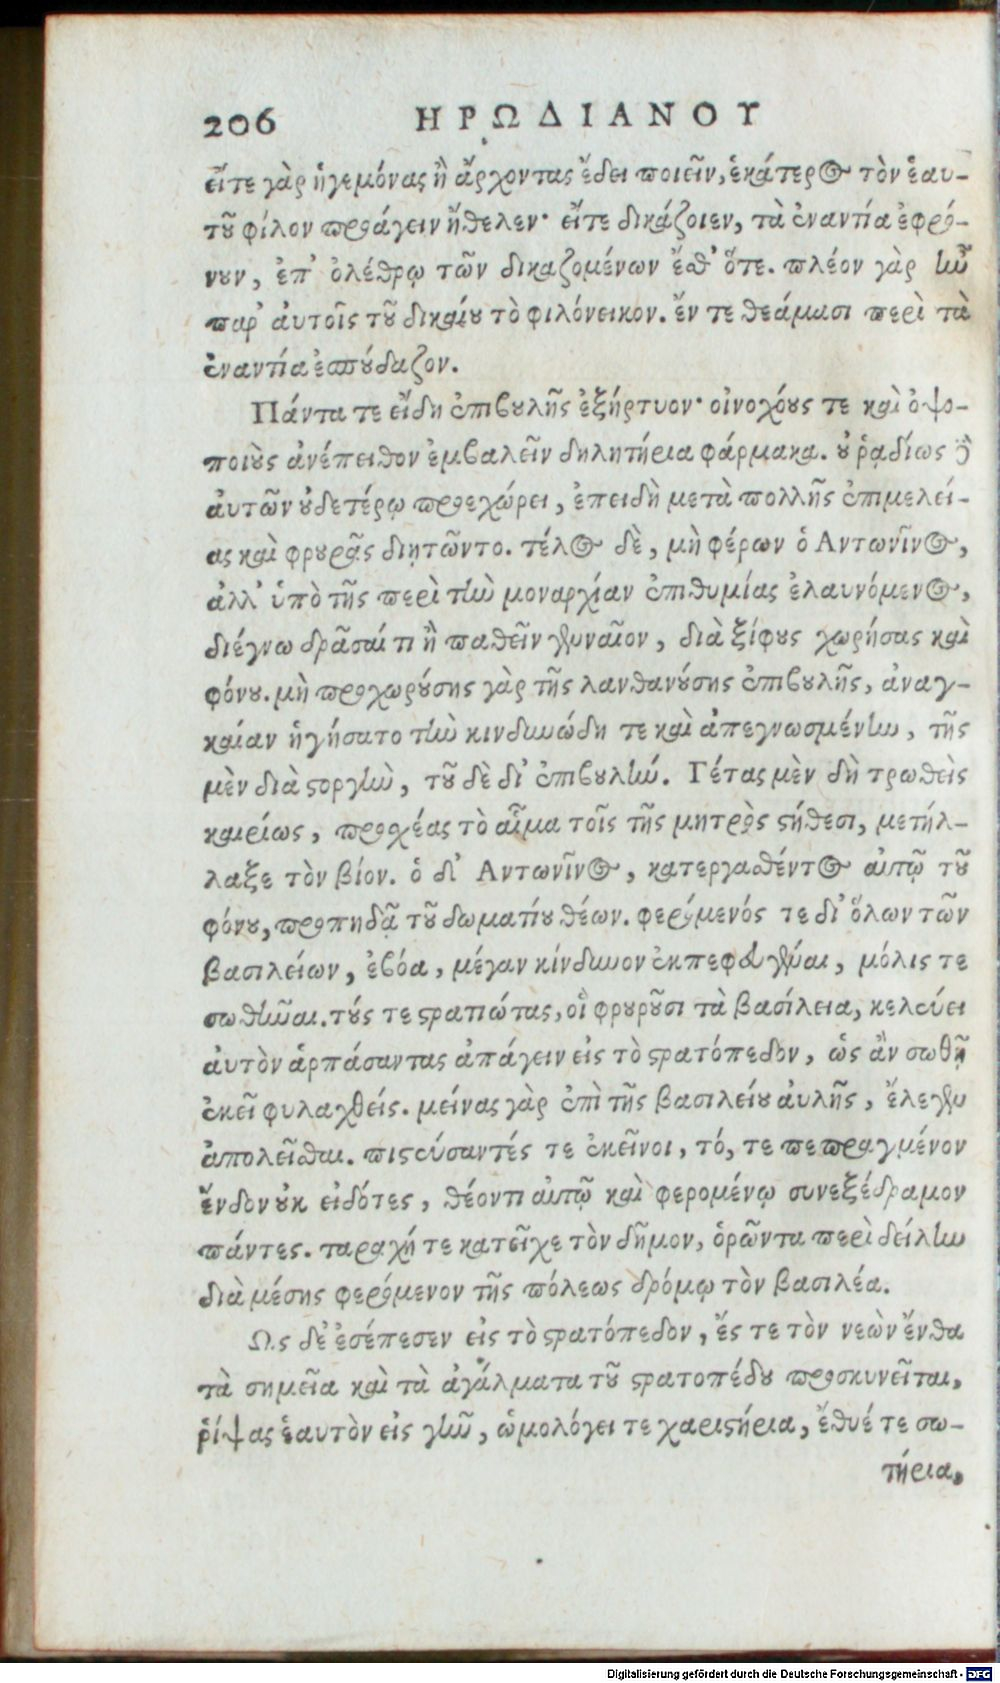 206 ΗΡΩΔΙΑΝΟΥ
εἴτε γὰρ ἡγεμόνας ἢ ἄρχοντας ἔδει ποιεῖν, ἑκάτερος τὸν ἑαυ-
τοῦ φίλον προάγειν ἤθελεν· εἴτε δικάζοιεν, τὰ ἐναντία ἐφρό-
νουν, ἐπ' ὀλέθρῳ τῶν δικαζομένων ἔσθ' ὅτε. πλέον γὰρ ἦν
παρ' αὐτοῖς τοῦ δικαίου τὸ φιλόνεικον. ἔν τε θεάμασι περὶ τὰ
ἐναντία ἐσπούδαζον.
Πάντα τε εἴδη ἐπιβουλῆς ἐξήρτυον· οἰνοχόους τε καὶ ὀψο-
ποιοὺς ἀνέπειθον ἐμβαλεῖν δηλητήρια φάρμακα. οὐ ῥᾳδίως δὲ
αὐτῶν οὐδετέρῳ προεχώρει, ἐπειδὴ μετὰ πολλῆς ἐπιμελεί-
ας καὶ φρουρᾶς διῃτῶντο. τέλος δὲ, μὴ φέρων ὁ Αντωνῖνος,
ἀλλ' ὑπὸ τῆς περὶ τὴν μοναρχίαν ἐπιθυμίας ἐλαυνόμενος,
διέγνω δρᾶσαί τι ἢ παθεῖν γενναῖον, διὰ ξίφους χωρήσας καὶ
φόνου. μὴ προχωρούσης γὰρ τῆς λανθανούσης ἐπιβουλῆς, ἀναγ-
καίαν ἡγήσατο τὴν κινδυνώδη τε καὶ ἀπεγνωσμένην, τῆς
μὲν διὰ στοργὴν, τοῦ δὲ δι' ἐπιβουλήν. Γέτας μὲν δὴ τρωθεὶς
καιρίως, προχέας τὸ αἷμα τοῖς τῆς μητρὸς στήθεσι, μετήλ-
λαξε τὸν βίον. ὁ δ' Αντωνῖνος, κατεργασθέντος αὐτῷ τοῦ
φόνου, προπηδᾷ τοῦ δωματίου θέων. φερόμενός τε δι' ὅλων τῶν
βασιλείων, ἐβόα, μέγαν κίνδυνον ἐκπεφευγέναι, μόλις τε
σωθῆναι. τούς τε στρατιώτας, οἳ φρουροῦσι τὰ βασίλεια, κελεύει
αὐτὸν ἁρπάσαντας ἀπάγειν εἰς τὸ στρατόπεδον, ὡς ἂν σωθῇ
ἐκεῖ φυλαχθείς. μείνας γὰρ ἐπὶ τῆς βασιλείου αὐλῆς, ἔλεγεν
ἀπολεῖσθαι. πιστεύσαντές τε ἐκεῖνοι, τό, τε πεπραγμένον
ἔνδον οὐκ εἰδότες, θέοντι αὐτῷ καὶ φερομένῳ συνεξέδραμον
πάντες. ταραχή τε κατεῖχε τὸν δῆμον, ὁρῶντα περὶ δείλην
διὰ μέσης φερόμενον τῆς πόλεως δρόμῳ τὸν βασιλέα.
Ως δὲ ἐσέπεσεν εἰς τὸ στρατόπεδον, ἔς τε τὸν νεὼν ἔνθα
τὰ σημεῖα καὶ τὰ ἀγάλματα τοῦ στρατοπέδου προσκυνεῖται,
ῥίψας ἑαυτὸν εἰς γῆν, ὡμολόγει τε χαριστήρια, ἔθυέ τε σω-
τήρια,
Digitalisierung gefördert durch die Deutsche Forschungsgemeinschaft - DFG